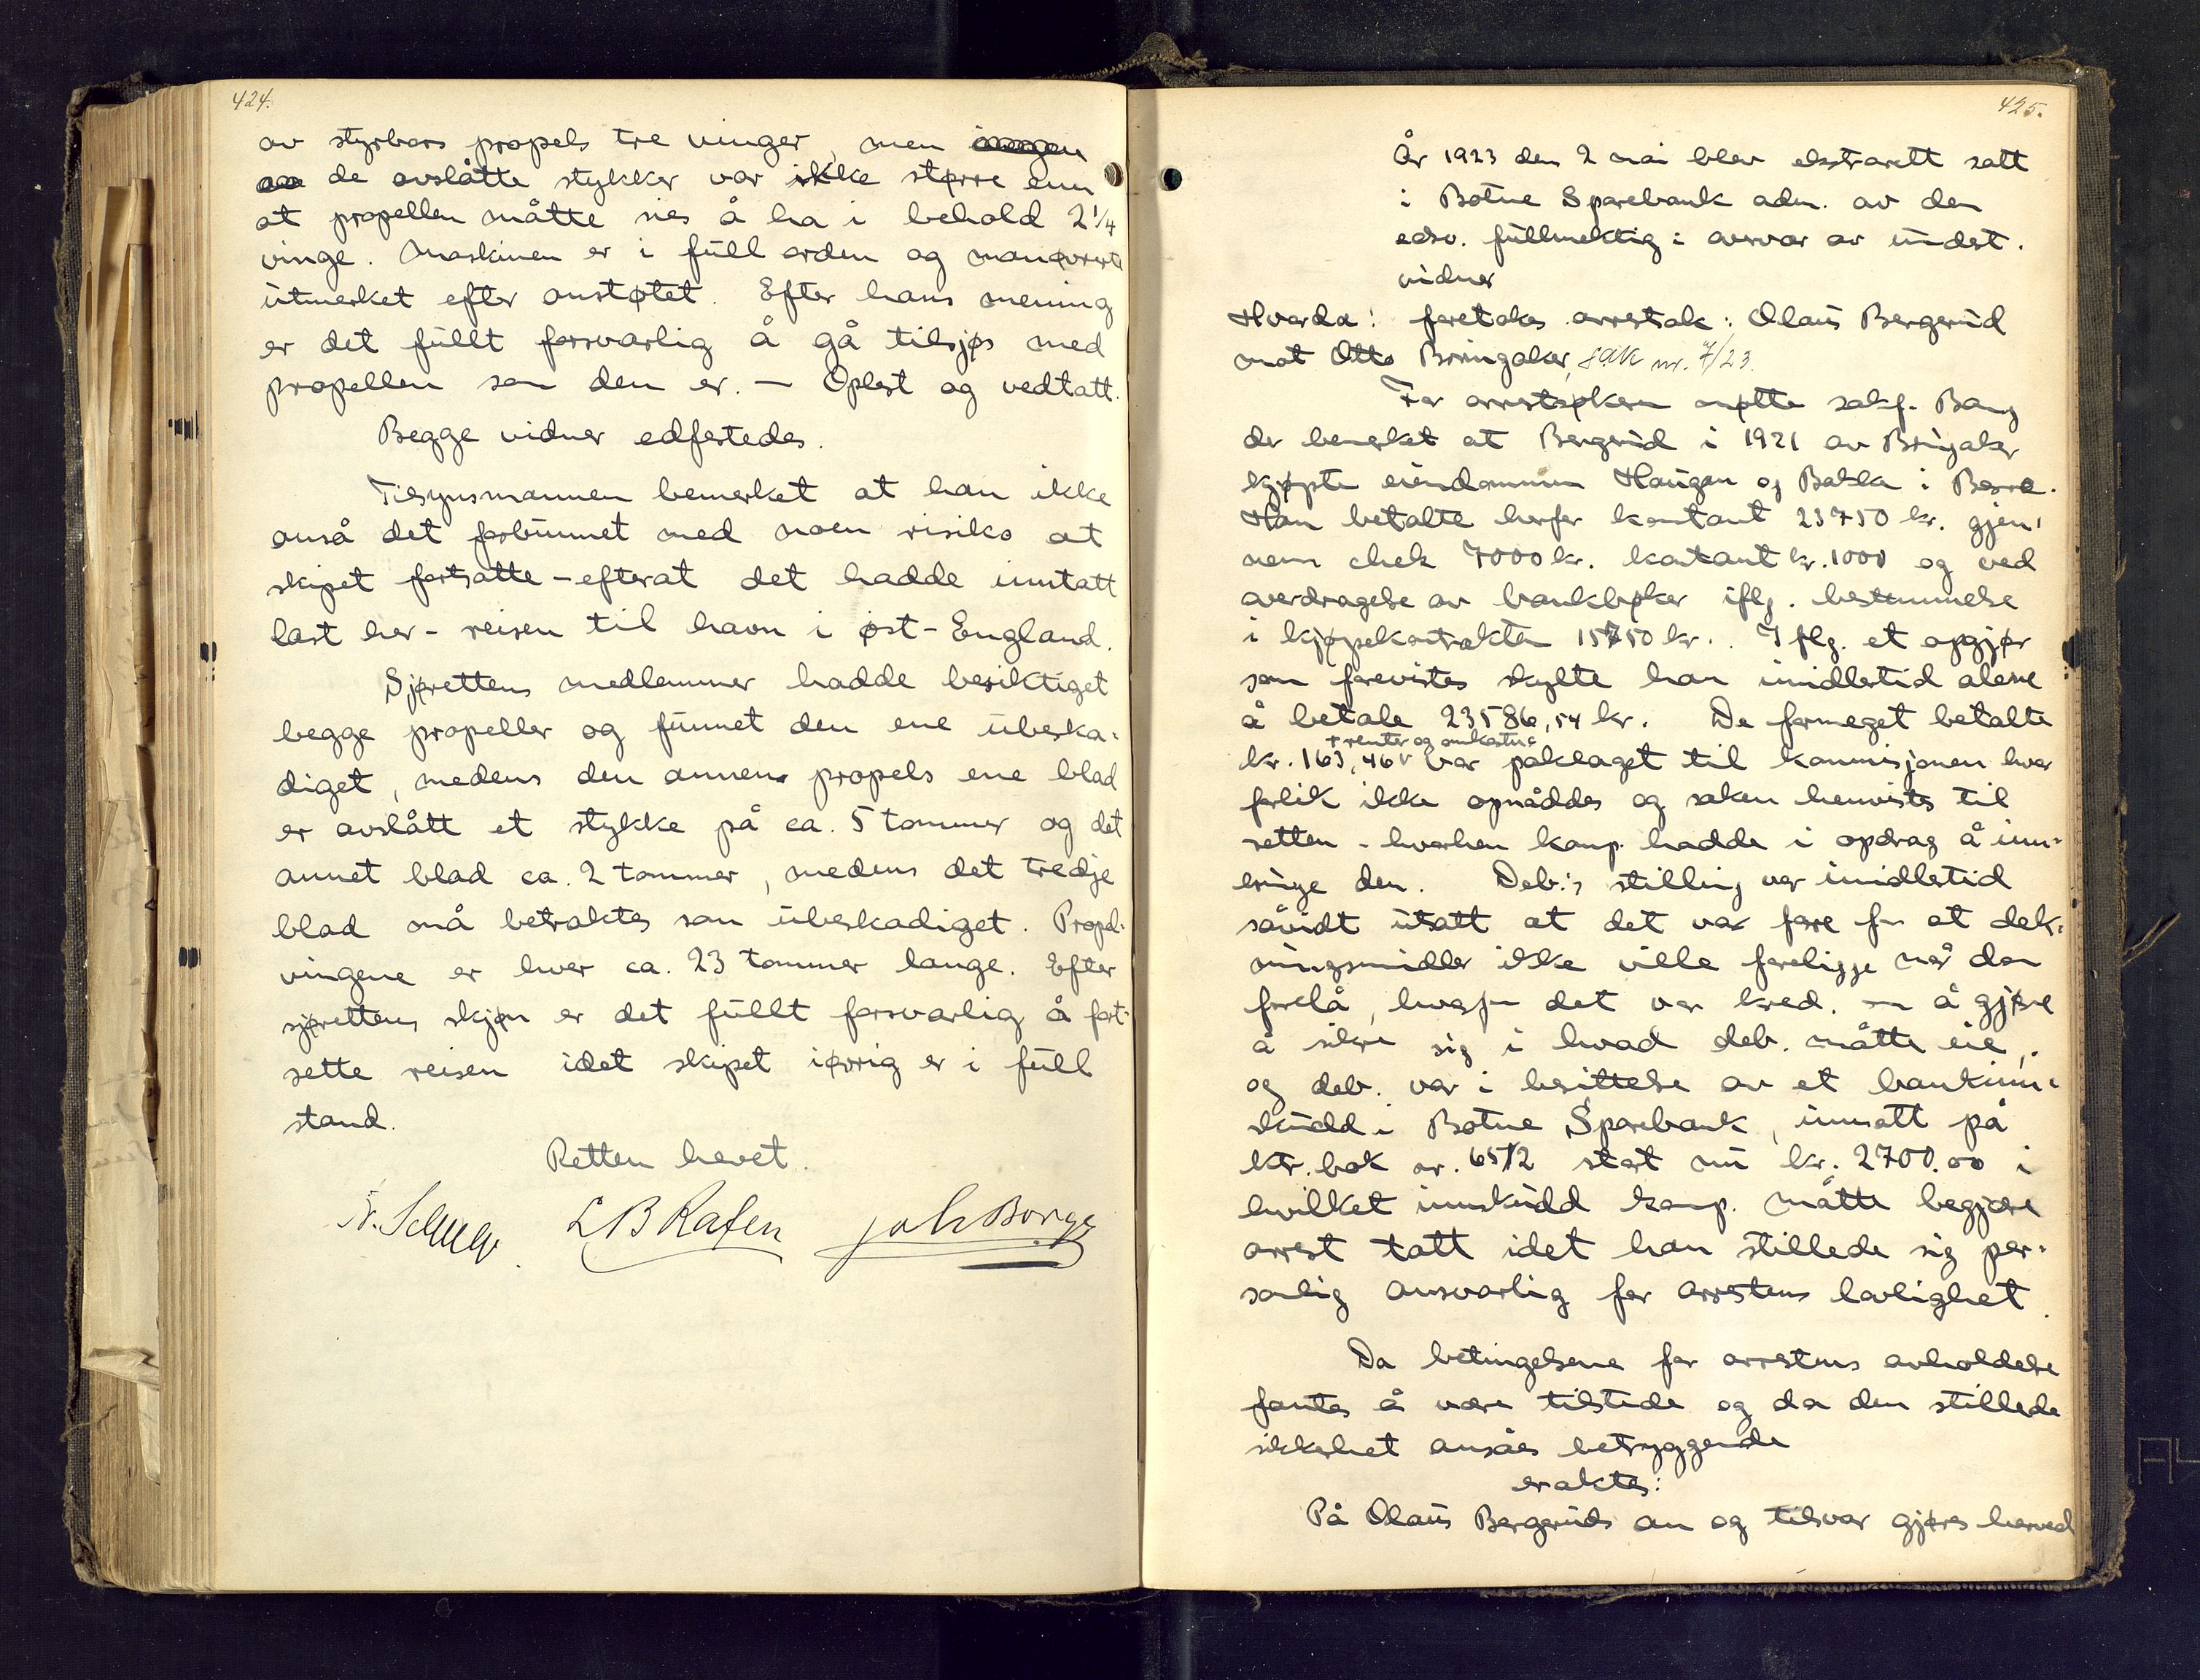 424.
av styrbors propels tre vinger, men
de avslåtte stykker var ikke større enn
at propellen måtte sies å ha i behold 2 1/4
vinge. Maskinen er i full orden og manøvrerte
utmerket efter anstøtet. Efter hans mening
er det fullt forsvarlig å gå tilsjøs med
propellen som den er. — Oplest og vedtatt.
Begge vidner edfestedes.
Tilsynsmannen bemerket at han ikke
anså det forbunnet med noen risiko at
skipet fortsatte – efterat det hadde inntatt
last her – reisen til havn i øst-England.
Sjørettens medlemmer hadde besiktiget
begge propeller og funnet den ene ubeska-
diget, medens den annens propels ene blad
er avslått et stykke på ca. 5 tommer og det
annet blad ca. 2 tommer, medens det tredje
blad må betraktes som ubeskadiget. Propel-
vingene er hver ca. 23 tommer lange. Efter
sjørettens skjøn er det fullt forsvarlig å fort-
sette reisen idet skipet iøvrig er i full
stand.
Retten hevet.
L B Rafen Joh Borge
425.
År 1923 den 2 mai blev ekstrarett satt
i Botne Sparebank adm. av den
edsv. fullmektig i overvær av undst.
vidner
Hvorda: foretokes arrestsak: Olaus Bergerud
mot Otto Bringaker, sak nr. 7/23.
For arrestsøkeren møtte sakf. Bang
der bemerket at Bergerud i 1921 av Bringaker
kjøpte eiendommen Haugen og Bakka i
Han betalte herfor kontant 23750 kr. gjen-
nem chek 7000 kr. kontant kr. 1000 og ved
overdragelse av bankbøker iflg. bestemmelse
i kjøpekontrakten 15750 kr. Iflg. et opgjør
som forevistes skyldte han imidlertid alene
å betale 23586,54 kr. De formeget betalte
+ renter og omkostn.
kr. 163,46 v var påklaget til kommisjonen hvor
forlik ikke opnåddes og saken henvistes til
retten – hvorhen komp. hadde i opdrag å inn-
bringe den. Deb.'s stilling var imidlertid
såvidt utsatt at det var fare for at dek-
ningsmidler ikke ville foreligge når dom
forelå, hvorfor det var kred. om å gjøre
å sikre sig i hvad deb. måtte eie,
og deb. var i besittelse av et bankinn-
skudd i Botne Sparebank, innsatt på
ktr. bok nr. 6512 stort nu kr. 2700.00 i
hvilket innskudd komp. måtte begjære
arrest tatt idet han stillede sig per-
sonlig ansvarlig for arrestens lovlighet.
Da betingelsene for arrestens avholdelse
fantes å være tilstede og da den stillede
sikkerhet ansåes betryggende
eraktes:
På Olaus Bergeruds an og tilsvar gjøres herved